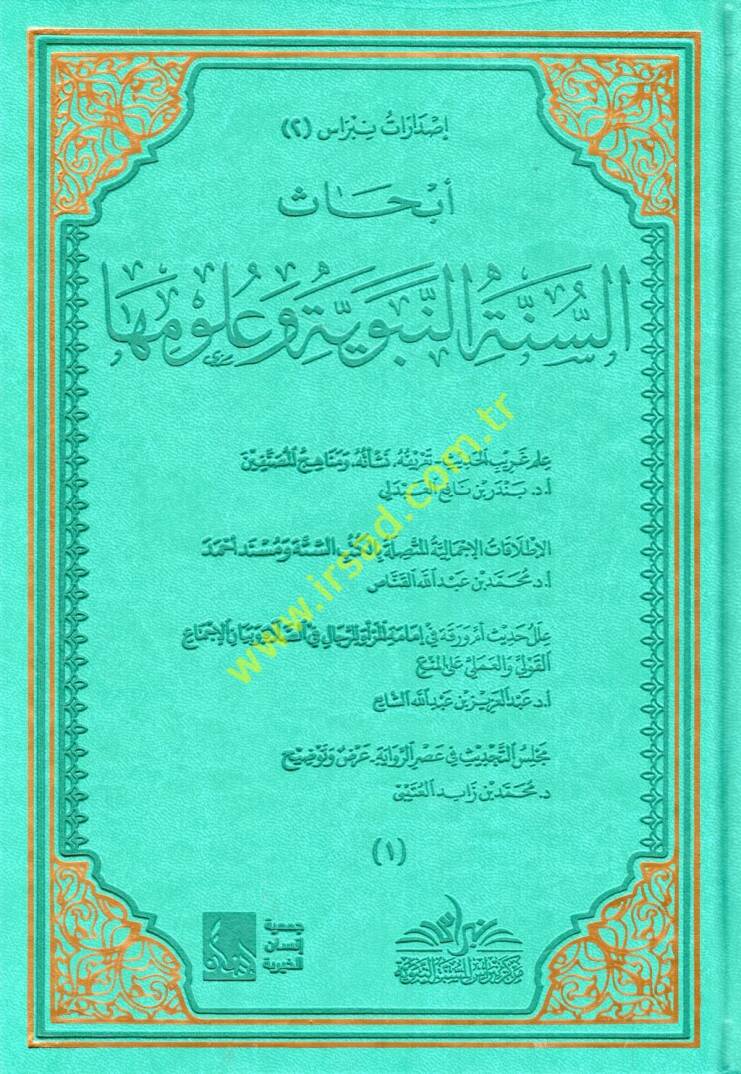 إصدارات نبراس (٢)
أبحاث
السُّنَّةِ النَّبَوِيَّةِ وَعُلُومِهَا
علم غريب الحديث - تعريفه، نشأته، ومناهج المصنفين
أ.د. بندر بن نافع العبدلي
الإطلاقات الإجمالية المتصلة بالكتب الستة ومسند أحمد
أ.د. محمد بن عبد الله القناص
علل حديث أم ورقة في إمامة المرأة للرجال في الصلاة وبيان الإجماع
القولي والعملي على المنع
أ.د. عبد العزيز بن عبد الله الشايع
مجلس التحديث في عصر الرواية - عرض وتوضيح
د. محمد بن زايد العتيبي
(١)
نبراس
مركز نبراس السنة النبوية
جمعية
إنسان
الخيرية
www.irsad.com.tr